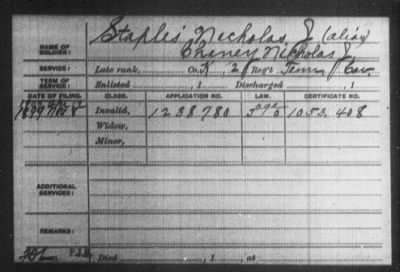 Staples Nicholas, J. (alias)
NAME OF SOLDIER: Chaney Nicholas J.
SERVICE: Late rank, Co. K, 2 Reg't Tenn Cav.
TERM OF SERVICE: Enlisted , 1 Discharged , 1
DATE OF FILING. CLASS. APPLICATION NO. LAW. CERTIFICATE NO.
1899 Nov 8 Invalid, 1238780 1053.408
Widow,
Minor,
ADDITIONAL SERVICES:
REMARKS:
P.S.B. Died , 1 , at